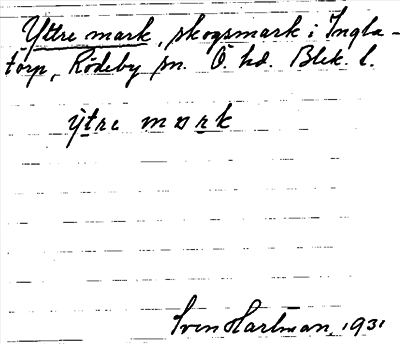 Yttre mark, skogsmark i Ingla-
torp, Rödeby sn. Ö. hd. Blek. l.
ỳtre mɑrk
Sven Hartman, 1931